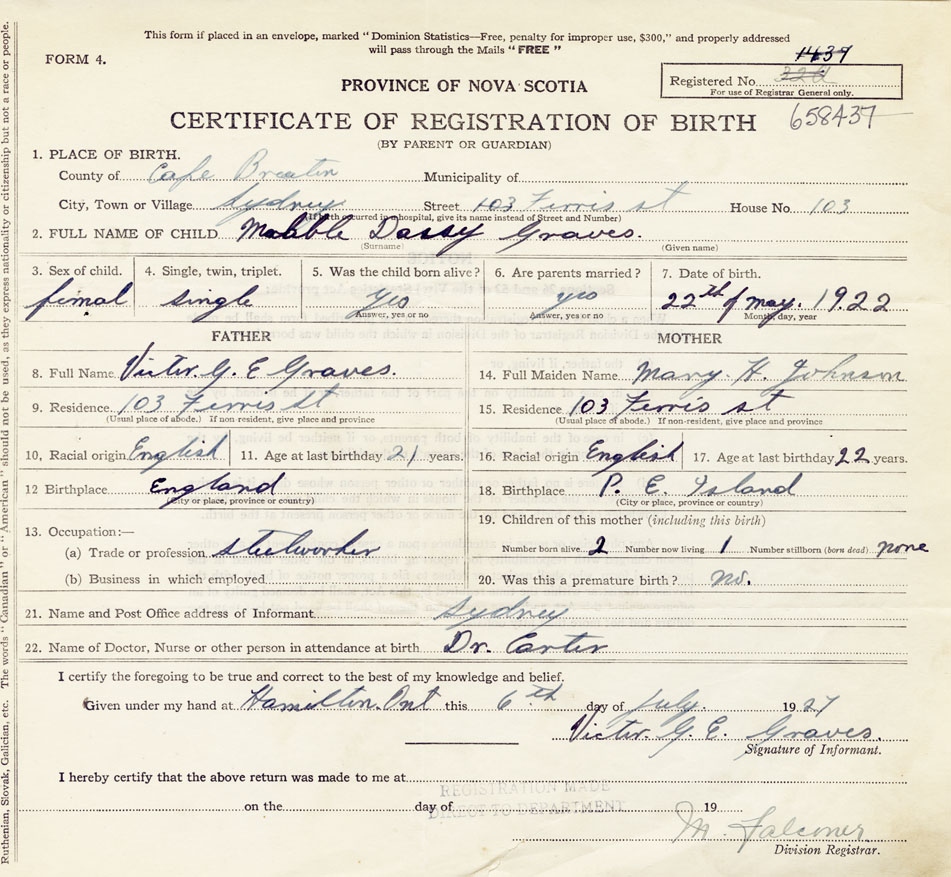 This form if placed in an envelope, marked “Dominion Statistics—Free, penalty for improper use, $300,” and properly addressed
will pass through the Mails “FREE”
FORM 4.
1437
PROVINCE OF NOVA SCOTIA
Registered No.
For use of Registrar General only.
CERTIFICATE OF REGISTRATION OF BIRTH 658437
(BY PARENT OR GUARDIAN)
1. PLACE OF BIRTH.
County of Cape Breatin Municipality of
City, Town or Village Sydney Street 103 Ferris st House No. 103
(If birth occurred in hospital, give its name instead of Street and Number)
2. FULL NAME OF CHILD Mabble Dassy Graves.
(Surname) (Given name)
3. Sex of child. 4. Single, twin, triplet. 5. Was the child born alive? 6. Are parents married? 7. Date of birth.
fimal single yes yes 22th of may. 1922
Answer, yes or no Answer, yes or no Month, day, year
FATHER MOTHER
8. Full Name Victor. G. E Graves. 14. Full Maiden Name Mary. H. Johnson
9. Residence 103 Ferris st 15. Residence 103 Ferris st
(Usual place of abode.) If non-resident, give place and province (Usual place of abode.) If non-resident, give place and province
10, Racial origin English 11. Age at last birthday 21 years. 16. Racial origin English 17. Age at last birthday 22 years.
12 Birthplace England 18. Birthplace P. E. Island
(City or place, province or country) (City or place, province or country)
13. Occupation:— 19. Children of this mother (including this birth)
(a) Trade or profession steelworker Number born alive 2 Number now living 1 Number stillborn (born dead) none
(b) Business in which employed 20. Was this a premature birth? no.
21. Name and Post Office address of Informant Sydney
22. Name of Doctor, Nurse or other person in attendance at birth Dr. Carter
I certify the foregoing to be true and correct to the best of my knowledge and belief.
Given under my hand at Hamilton. Ont this 6th day of July. 1927
Victor. G. E. Graves.
Signature of Informant.
I hereby certify that the above return was made to me at
REGISTRATION MADE
on the day of 19
DIRECT TO DEPARTMENT
M. Falconer
Division Registrar.
Ruthenian, Slovak, Galician, etc. The words “Canadian” or “American” should not be used, as they express nationality or citizenship but not a race or people.